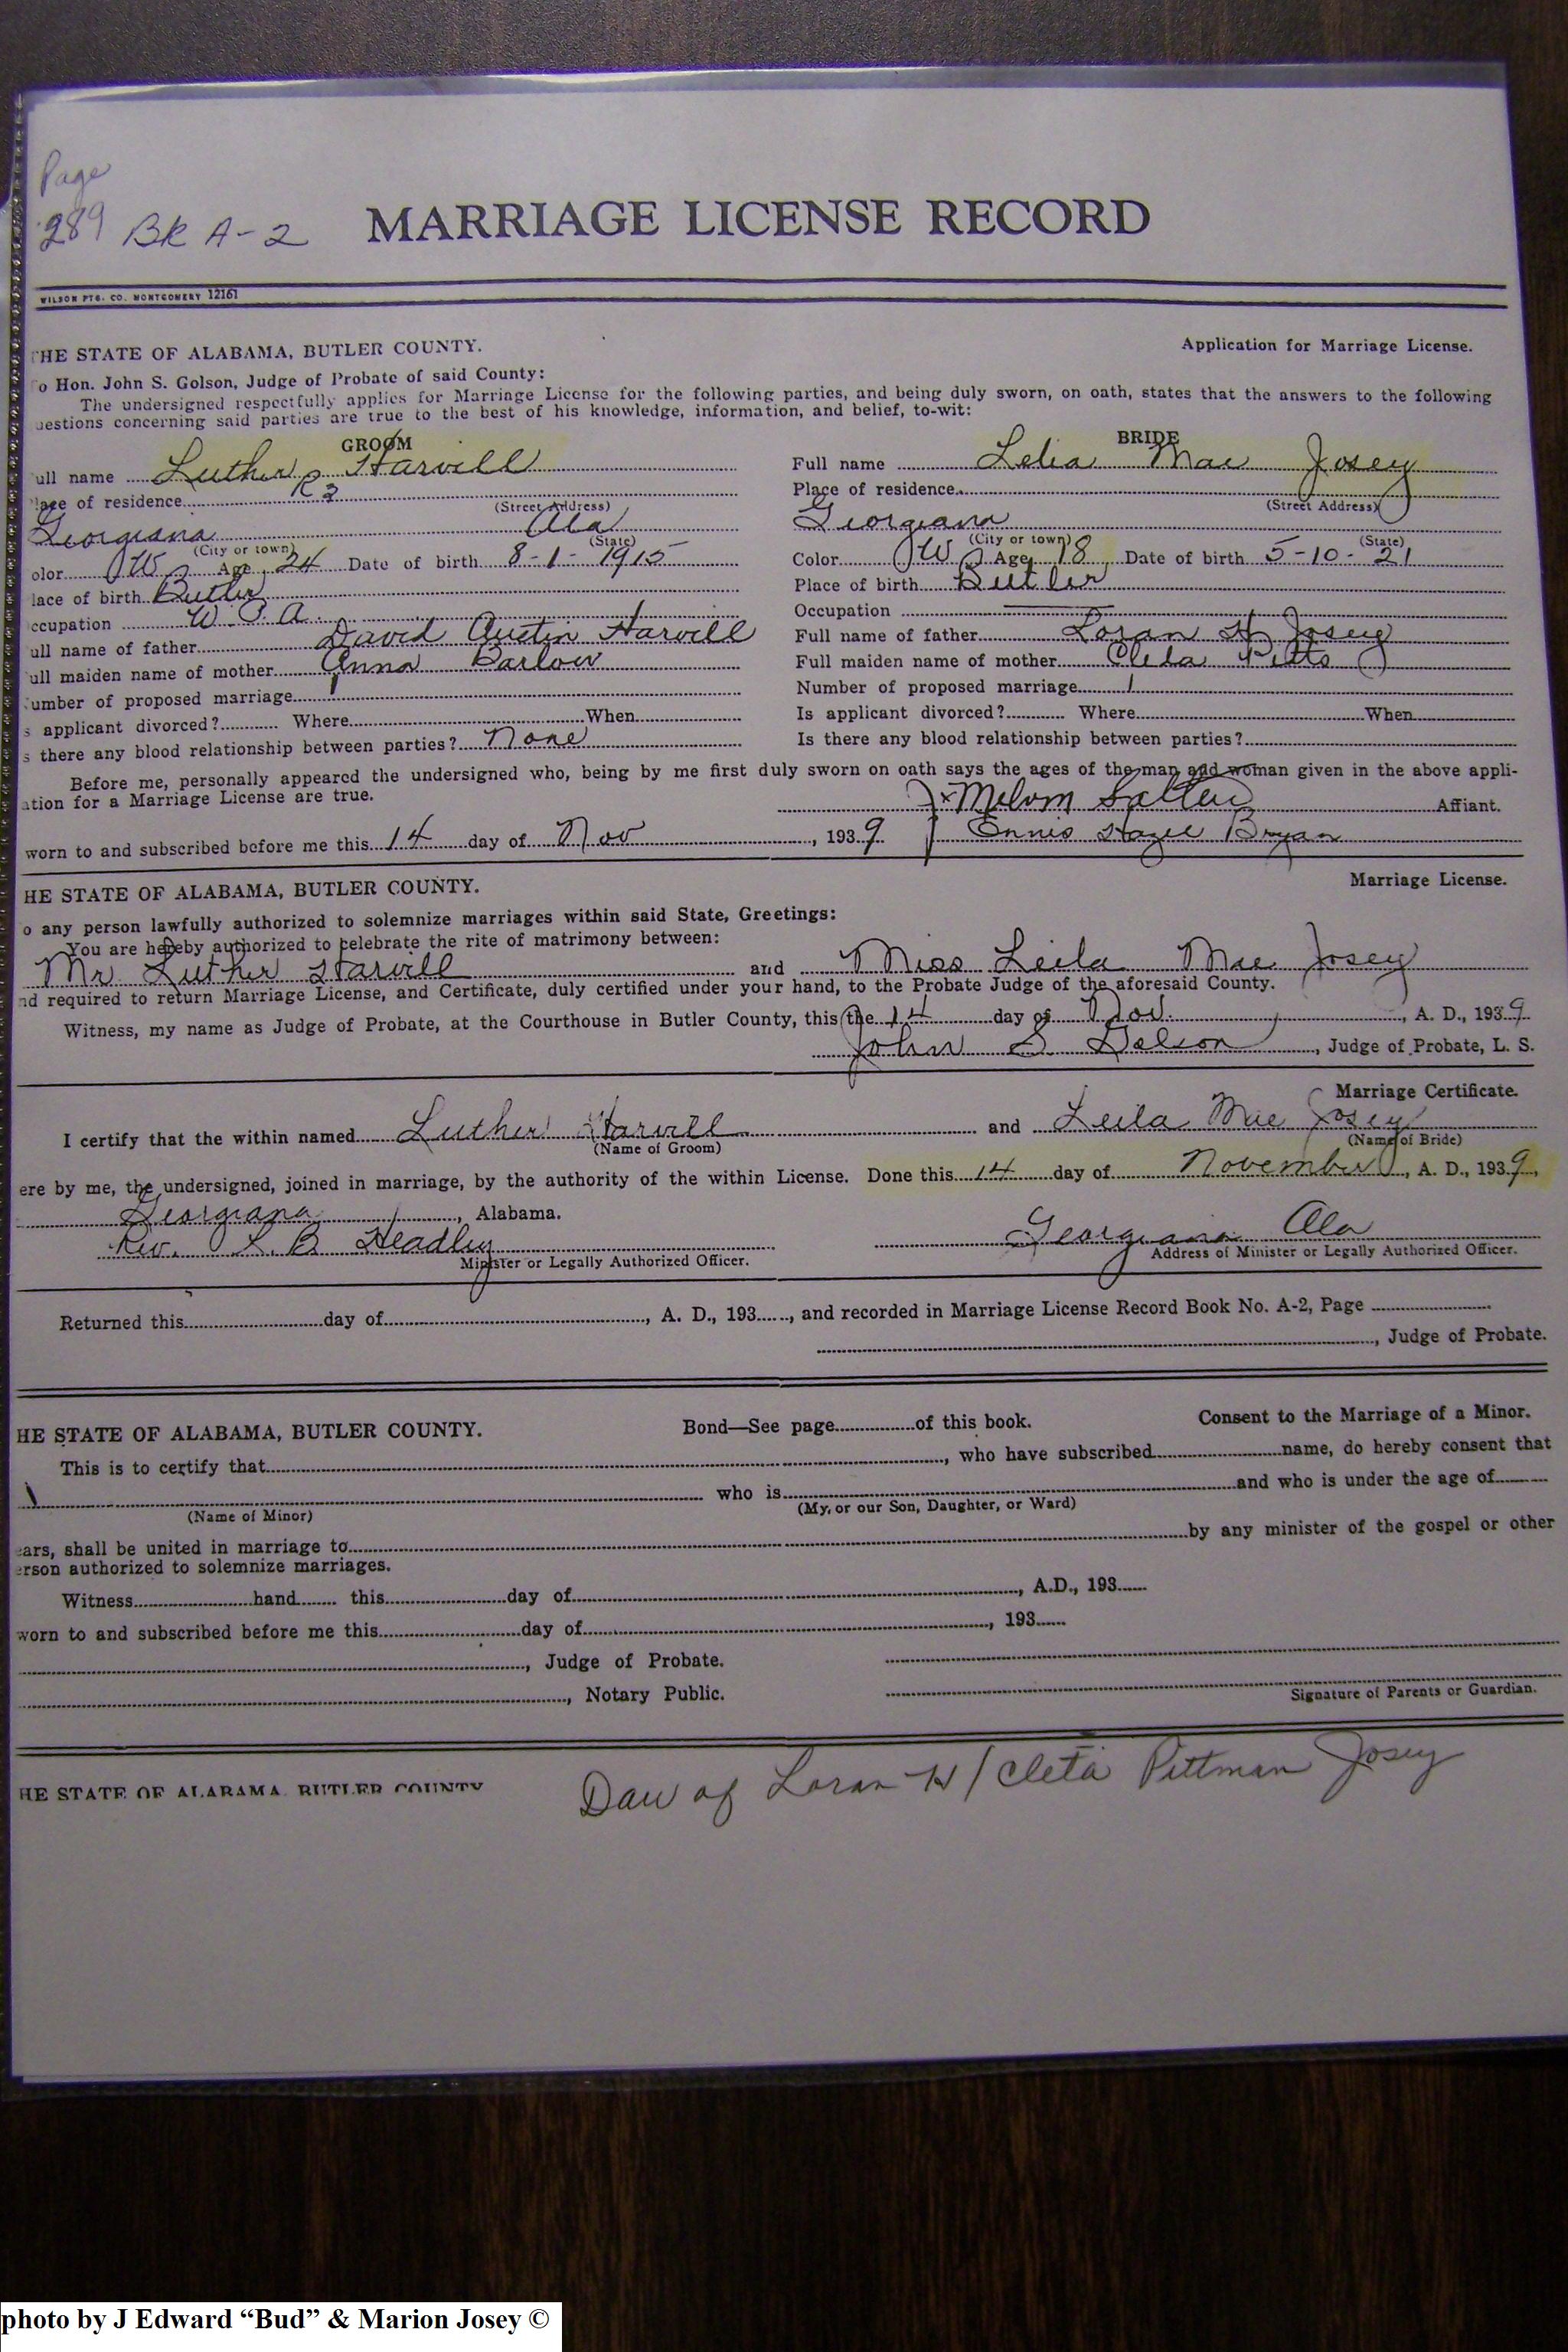 Page
289 BK A-2 MARRIAGE LICENSE RECORD
WILSON PTG. CO. MONTGOMERY 12161
HE STATE OF ALABAMA, BUTLER COUNTY. Application for Marriage License.
o Hon. John S. Golson, Judge of Probate of said County:
The undersigned respectfully applies for Marriage License for the following parties, and being duly sworn, on oath, states that the answers to the following
uestions concerning said parties are true to the best of his knowledge, information, and belief, to-wit:
GROOM BRIDE
ull name Luther Harvill Full name Lelia Mae Josey
lace of residence R2 Place of residence
(Street Address) (Street Address)
Georgiana Ala Georgiana
(City or town) (State) (City or town) (State)
olor W Age 24 Date of birth 8-1-1915 Color W Age 18 Date of birth 5-10-21
lace of birth Butler Place of birth Butler
ccupation W.P.A. Occupation
ull name of father David Austin Harvill Full name of father Loran H Josey
ull maiden name of mother Anna Barlow Full maiden name of mother Cleta Pitts
umber of proposed marriage 1 Number of proposed marriage 1
s applicant divorced? Where When Is applicant divorced? Where When
s there any blood relationship between parties? None Is there any blood relationship between parties?
Before me, personally appeared the undersigned who, being by me first duly sworn on oath says the ages of the man and woman given in the above appli-
ation for a Marriage License are true.
x Melvin Salter Affiant.
worn to and subscribed before me this 14 day of Nov, 1939 Ennis Hazel Bryan
HE STATE OF ALABAMA, BUTLER COUNTY. Marriage License.
o any person lawfully authorized to solemnize marriages within said State, Greetings:
You are hereby authorized to celebrate the rite of matrimony between:
Mr Luther Harvill and Miss Leila Mae Josey
nd required to return Marriage License, and Certificate, duly certified under your hand, to the Probate Judge of the aforesaid County.
Witness, my name as Judge of Probate, at the Courthouse in Butler County, this the 14 day of Nov., A. D., 1939
John S Golson, Judge of Probate, L. S.
Marriage Certificate.
I certify that the within named Luther Harvill and Leila Mae Josey
(Name of Groom) (Name of Bride)
ere by me, the undersigned, joined in marriage, by the authority of the within License. Done this 14 day of November, A. D., 1939,
Georgiana, Alabama.
Rev. L. B Headley Georgiana Ala
Minister or Legally Authorized Officer. Address of Minister or Legally Authorized Officer.
Returned this day of , A. D., 193 , and recorded in Marriage License Record Book No. A-2, Page
, Judge of Probate.
HE STATE OF ALABAMA, BUTLER COUNTY. Bond—See page of this book. Consent to the Marriage of a Minor.
This is to certify that , who have subscribed name, do hereby consent that
who is and who is under the age of
(Name of Minor) (My, or our Son, Daughter, or Ward)
ars, shall be united in marriage to by any minister of the gospel or other
erson authorized to solemnize marriages.
Witness hand this day of , A.D., 193
worn to and subscribed before me this day of , 193
, Judge of Probate.
, Notary Public.
Signature of Parents or Guardian.
HE STATE OF ALABAMA, BUTLER COUNTY Dau of Loran H/Cleta Pittman Josey
photo by J Edward “Bud” & Marion Josey ©